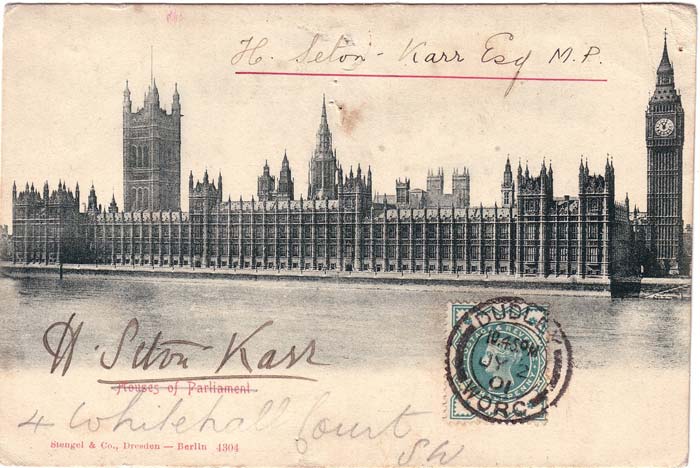 H. Seton-Karr Esq M.P.
H Seton Karr
Houses of Parliament
4 Whitehall Court
SW
Stengel & Co., Dresden — Berlin 4304
DUDLEY
10.45PM
2
01
WORC